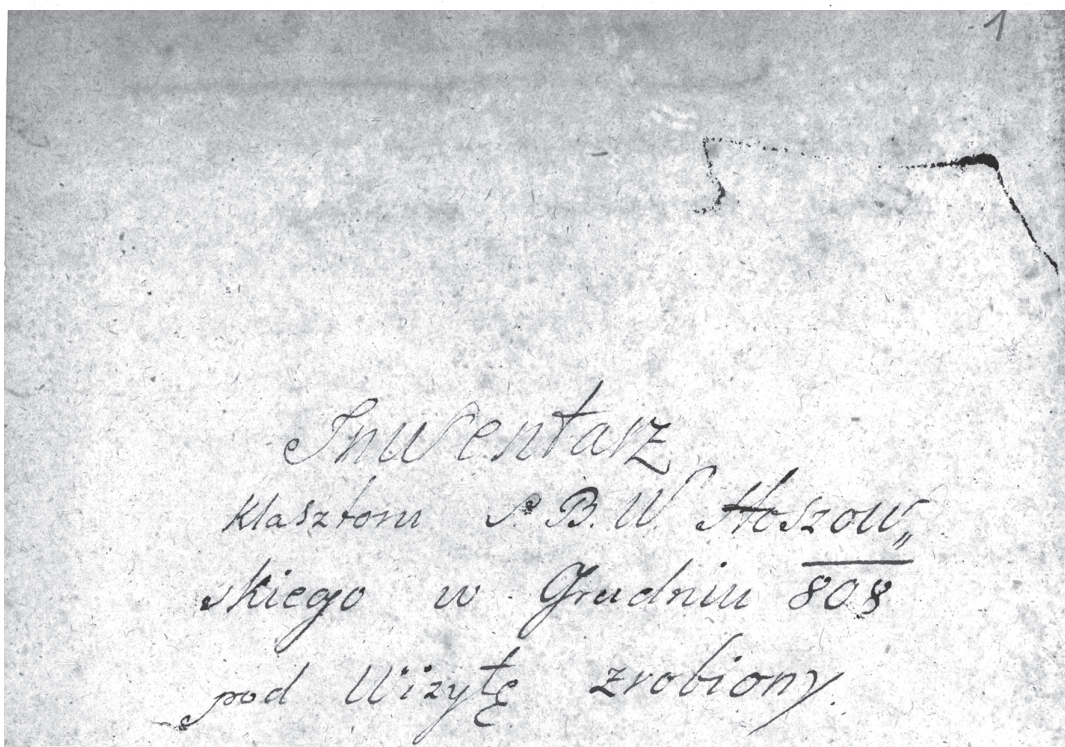 1
Inwentarz
Klasztoru S. B. W. Hoszow„
skiego w Grudniu 808
pod Wizytę zrobiony.